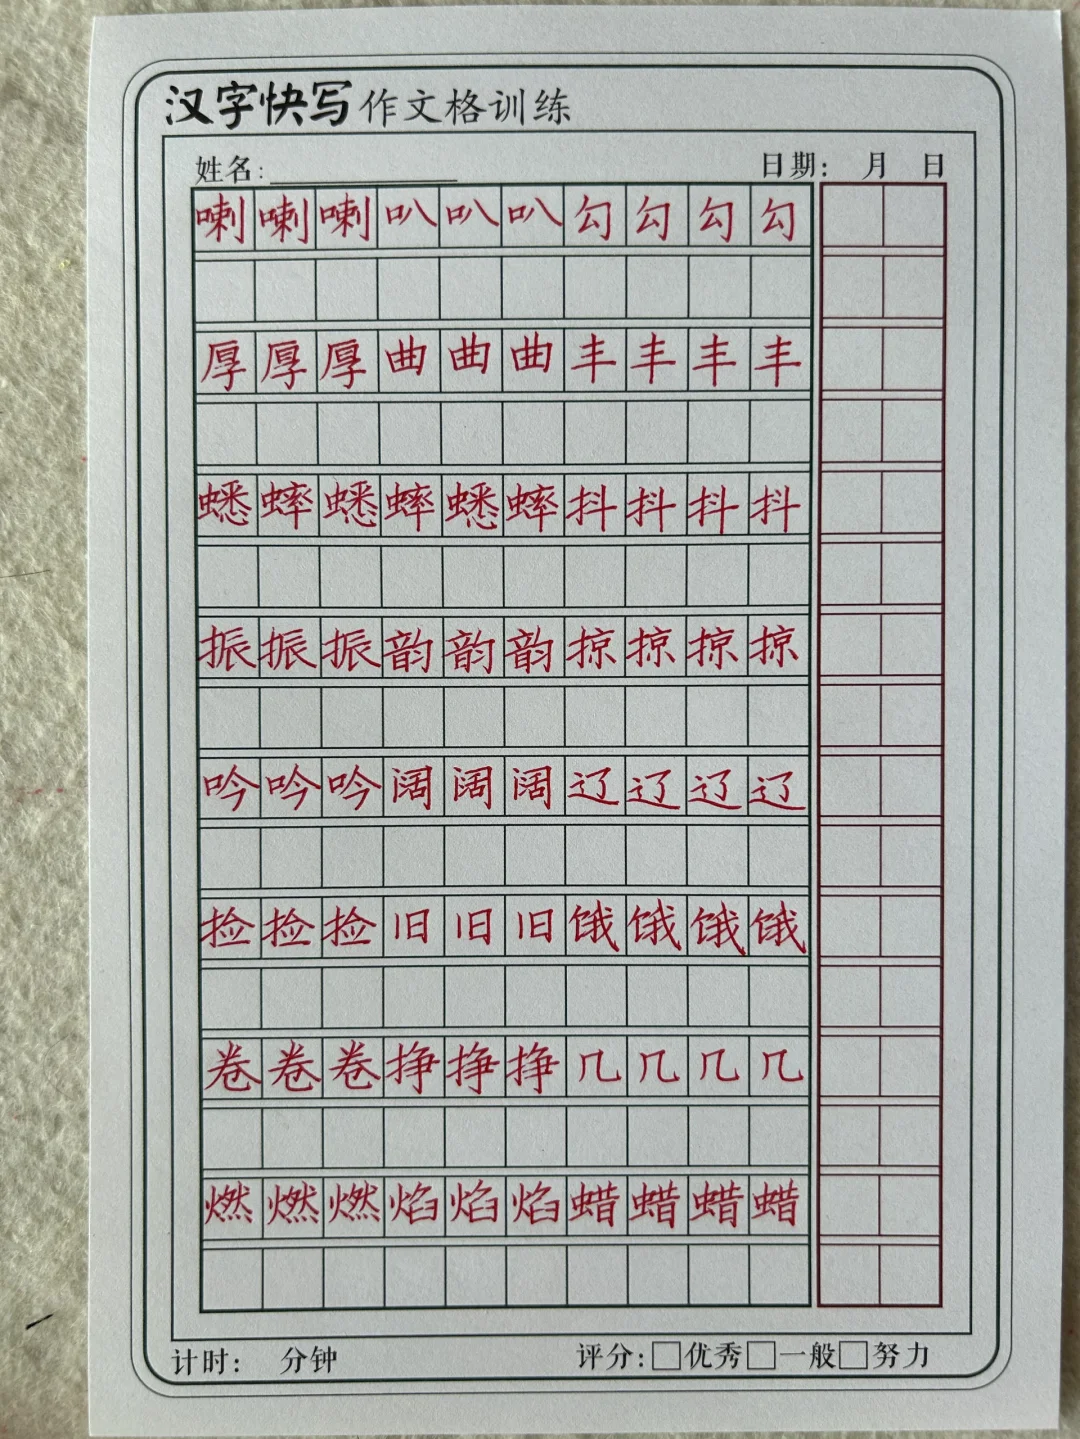 汉字快写作文格训练
姓名: 日期: 月 日
喇喇喇叭叭叭勾勾勾勾
厚厚厚曲曲曲丰丰丰丰
蟋蟀蟋蟀蟋蟀抖抖抖抖
振振振韵韵韵掠掠掠掠
吟吟吟阔阔阔辽辽辽辽
捡捡捡旧旧旧饿饿饿饿
卷卷卷挣挣挣几几几几
燃燃燃焰焰焰蜡蜡蜡蜡
计时: 分钟 评分:□优秀□一般□努力